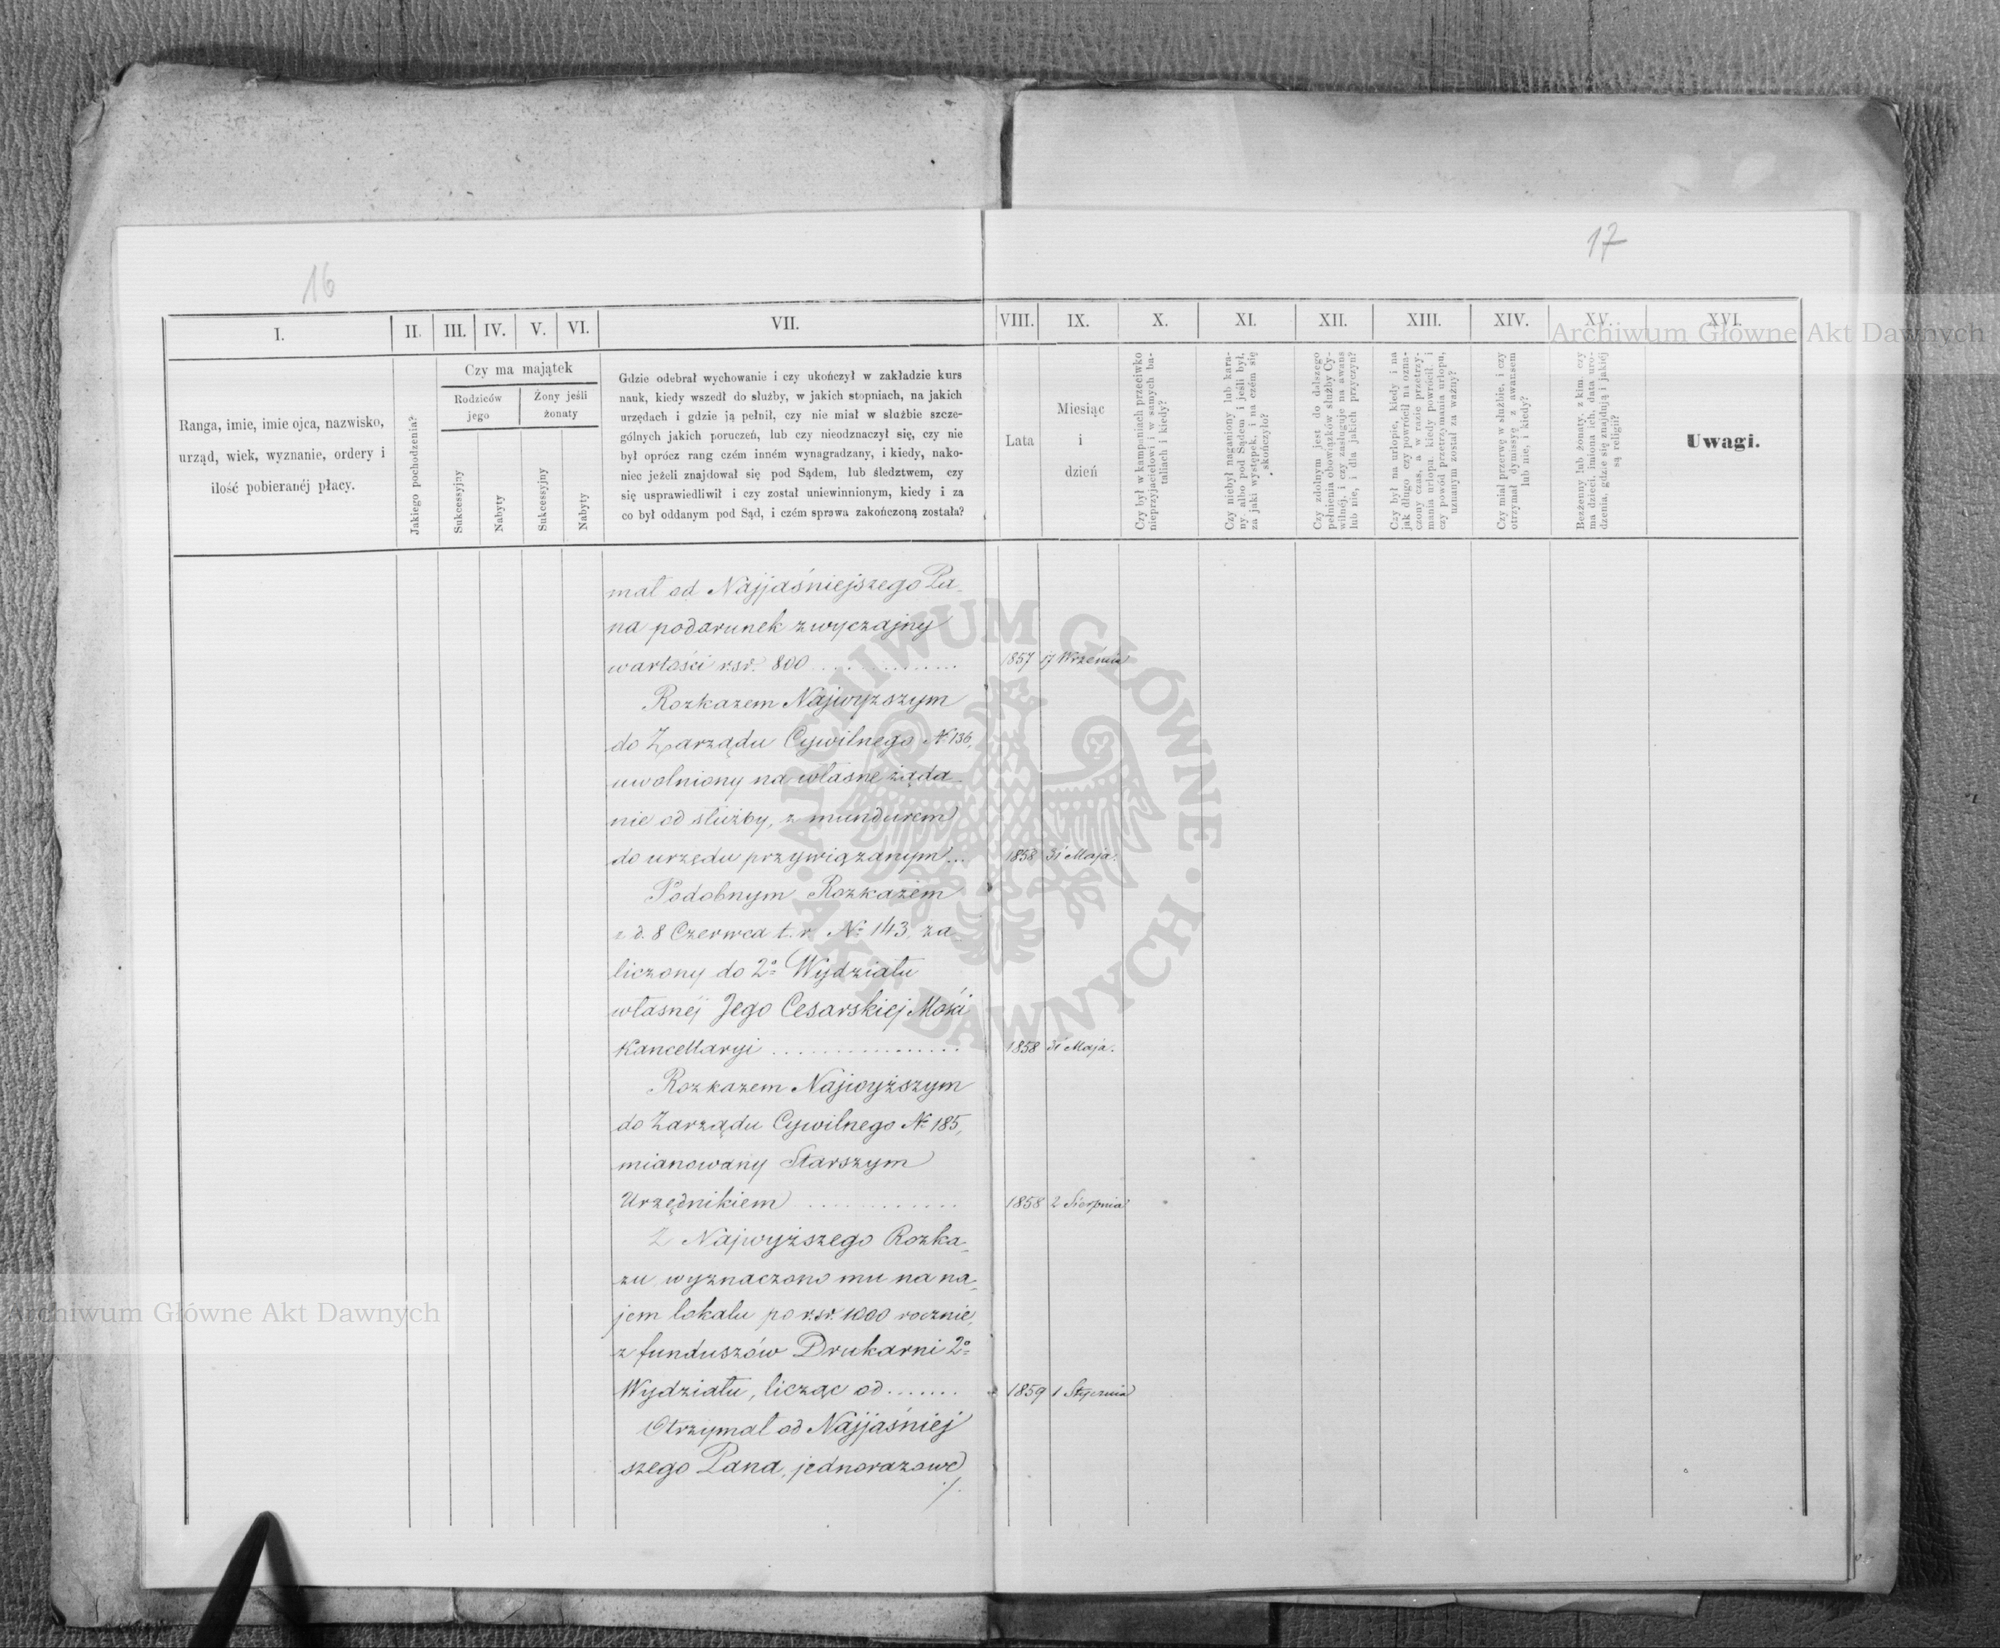 16
17
I. II. III. IV. V. VI. VII. VIII. IX. X. XI. XII. XIII. XIV. XV. XVI.
Ranga, imie, imie ojca, nazwisko,
urząd, wiek, wyznanie, ordery i
ilość pobieranéj płacy.
Jakiego pochodzenia?
Czy ma majątek
Rodziców
jego
Żony jeśli
żonaty
Sukcessyjny
Nabyty
Sukcessyjny
Nabyty
Gdzie odebrał wychowanie i czy ukończył w zakładzie kurs
nauk, kiedy wszedł do służby, w jakich stopniach, na jakich
urzędach i gdzie ją pełnił, czy nie miał w służbie szcze-
gólnych jakich poruczeń, lub czy nieodznaczył się, czy nie
był oprócz rang czém inném wynagradzany, i kiedy, nako-
niec jeżeli znajdował się pod Sądem, lub śledztwem, czy
się usprawiedliwił i czy został uniewinnionym, kiedy i za
co był oddanym pod Sąd, i czém sprawa zakończoną została?
Lata
Miesiąc
i
dzień
Czy był w kampaniach przeciwko
nieprzyjacielowi i w samych ba-
taliach i kiedy?
Czy niebył naganiony lub kara-
ny, albo pod Sądem i jeśli był,
za jaki występek, i na czém się
skończyło?
Czy zdolnym jest do dalszego
pełnienia obowiązków służby Cy-
wilnéj, i czy zasługuje na awans
lub nie, i dla jakich przyczyn?
Czy był na urlopie, kiedy i na
jak długo czy powrócił na ozna-
czony czas, a w razie przetrzy-
mania urlopu, kiedy powrócił i
czy powód przetrzymania urlopu,
uznanym został za ważny?
Czy miał przerwę w służbie, i czy
otrzymał dymissyę z awansem
lub nie, i kiedy?
Bezżenny lub żonaty, z kim, czy
ma dzieci, imiona ich, data uro-
dzenia, gdzie się znajdują i jakiéj
są religii?
Uwagi.
mał od Najjaśniejszego Pa-
na podarunek zwyczajny
wartości rsr. 800 .............. 1857 17 Września
Rozkazem Najwyższym
do Zarządu Cywilnego № 136,
uwolniony na własne żąda-
nie od służby, z mundurem
do urzędu przywiązanym ... 1858 31 Maja.
Podobnym Rozkazem
z d. 8 Czerwca t. r. № 143, za-
liczony do 2º Wydziału
własnéj Jego Cesarskiej Mości
Kancellaryi ................ 1858 31 Maja.
Rozkazem Najwyższym
do Zarządu Cywilnego № 185,
mianowany Starszym
Urzędnikiem ............ 1858 2 Sierpnia
Z Najwyższego Rozka-
zu wyznaczono mu na na-
jem lokalu po rsr. 1000 rocznie,
z funduszów Drukarni 2º
Wydziału, licząc od ....... 1859 1 Stycznia
Otrzymał od Najjaśniej
szego Pana, jednorazowe
./.
Archiwum Główne Akt Dawnych
Archiwum Główne Akt Dawnych
ARCHIWUM GŁÓWNE · AKT DAWNYCH ·